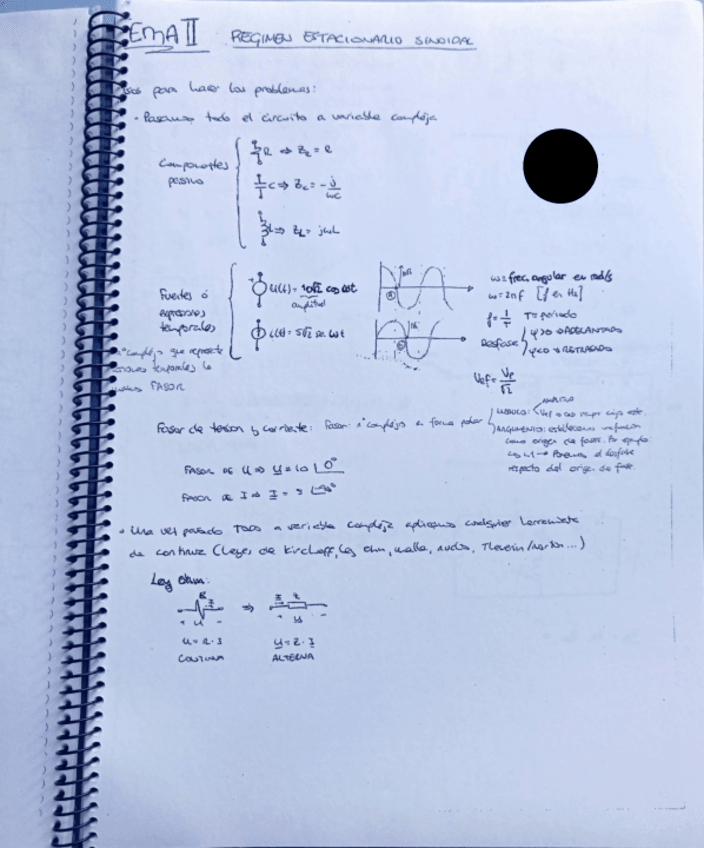 EMA II REGIMEN ESTACIONARIO SINOIDAL
sos para hacer los problemas:
• Pasamos todo el circuito a variable compleja
Componentes
pasivo
R ⇒ Z_R = R
C ⇒ Z_C = -j/ωC
L ⇒ Z_L = jωL
Fuentes ó
expresiones
temporales
u(t) = 10√2 cos ωt
amplitud
i(t) = 5√2 sen ωt
ω = frec. angular en rad/s
ω = 2πf [f en Hz]
f = 1/T T = periodo
Desfase
φ>0 → ADELANTADO
φ<0 → RETRASADO
Uef = Vp/√2
nº complejo que representa
temporales lo
FASOR
Fasor de tension y corriente: Fasor: nº complejo en forma polar
MODULO:
ARGUMENTO: establecemos una función
como origen de fases. Por ejemplo
cos ωt → Ponemos el desfase
respecto del origen de fase.
FASOR DE U ⇒ U = 10 |0°
FASOR DE I ⇒ I = 5 |-90°
• Una vez pasado TODO a variable compleja aplicamos cualquier herramienta
de continua (Leyes de Kirchoff, ley ohm, malla, nudos, Thevenin/norton...)
Ley Ohm:
R I ⇒ I Z
+ U - + U -
U = R · I U = Z · I
CONTINUA ALTERNA